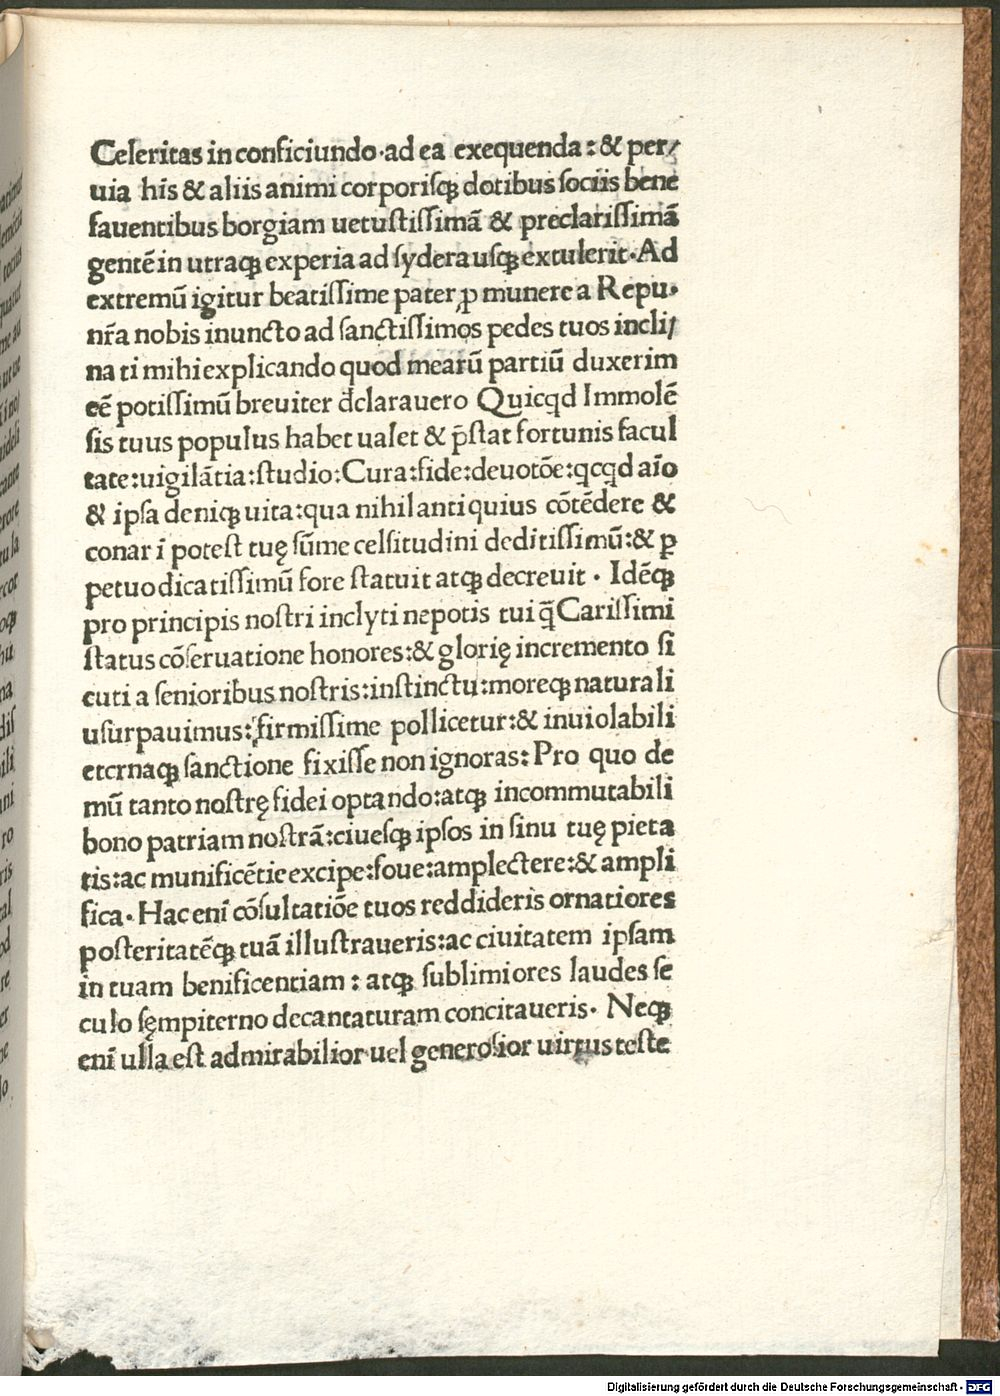 Celeritas in conficiundo·ad ea exequenda:& per/
uia hīs & aliis animi corporisqꝫ dotibus sociis bene
fauentibus borgiam uetustissimā & preclarissimā
gentē in utraqꝫ experia ad sydera usqꝫ extulerit·Ad
extremū igitur beatissime pater ꝓ munere a Repu·
nr̄a nobis inuncto ad sanctissimos pedes tuos incli/
na ti mihi explicando quod mearū partiū duxerim
eē potissimū breuiter dclarauero Quicqd Immolē
sis tuus populus habet ualet & p̄stat fortunis facul
tate:uigilātia:studio:Cura:fide:deuotōe:qcqd aīo
& ipsa deniqꝫ uita:qua nihil antiquius cōtēdere &
conar ī potest tuę sūme celsitudini deditissimū:& ꝑ
petuo dicatissimū fore statuit atqꝫ decreuit · Idēqꝫ
pro principis nostri inclyti nepotis tui q̄ Carissimi
status cōseruatione honores:& glorię incremento si
cuti a senioribus nostris:instinctu:moreqꝫ naturali
usurpauimus:firmissime pollicetur:& inuiolabili
eternaqꝫ sanctione fixisse non ignoras:Pro quo de
mū tanto nostrę fidei optando:atqꝫ incommutabili
bono patriam nostrā:ciuesqꝫ ipsos in sinu tuę pieta
tis:ac munificētie excipe:foue:amplectere:& ampli
fica· Hac enī cōsultatiōe tuos reddideris ornatiores
posteritatēqꝫ tuā illustraueris:ac ciuitatem ipsam
in tuam benificentiam : atqꝫ sublimiores laudes se
culo sęmpiterno decantaturam concitaueris· Neqꝫ
enī ulla est admirabilior uel generosior uirtus teste
Digitalisierung gefördert durch die Deutsche Forschungsgemeinschaft · DFG